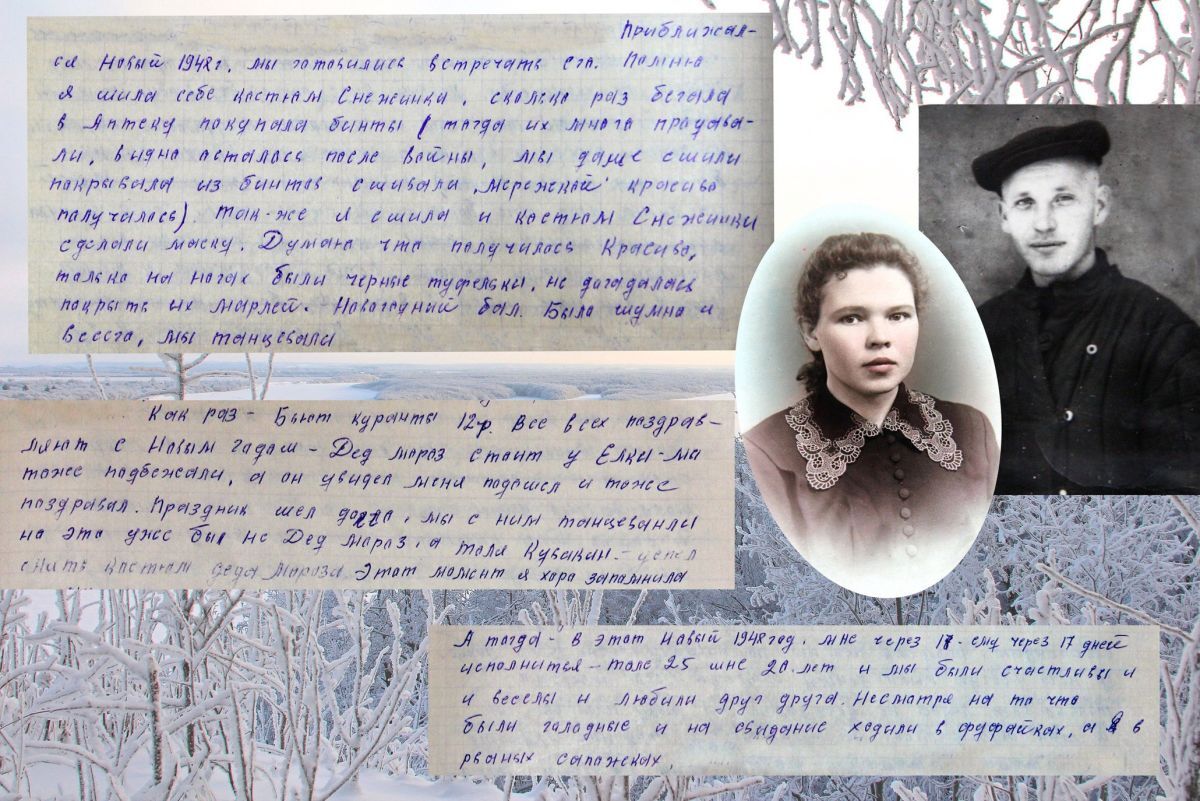 Приближал-
ся Новый 1948г. мы готовились встречать его. Помню
я шила себе костюм Снежинки, сколько раз бегала
в Аптеку покупала бинты (тогда их много продава-
ли, видно осталось после войны, мы даже сшили
покрывала из бинтов сшивали „мережкой" красиво
получалось). Так-же я сшила и костюм Снежинки
сделали маску. Думаю что получилось красиво,
только на ногах были черные туфельки, не догадалась
покрыть их марлей. Новогодний бал. Было шумно и
весело, мы танцевали
Как раз - Бьют куранты 12ч. Все всех поздрав-
ляют с Новым годом - Дед мороз стоит у Ёлки - мы
тоже подбежали, а он увидел меня подошел и тоже
поздравал. Праздник шел долго, мы с ним танцевали
но это уже был не Дед мороз, а Толя Кувакин - успел
снить костюм деда мороза. Этот момент я хоро запомнила
А тогда - в этот Новый 1948 год, мне через 18 - ему через 17 дней
исполнится - Толе 25 мне 20 лет и мы были счастливы и
и веселы и любили друг друга. Несмотря на то что
были голодные и на свидание ходили в фуфайках, а Я в
рваных сапожках.